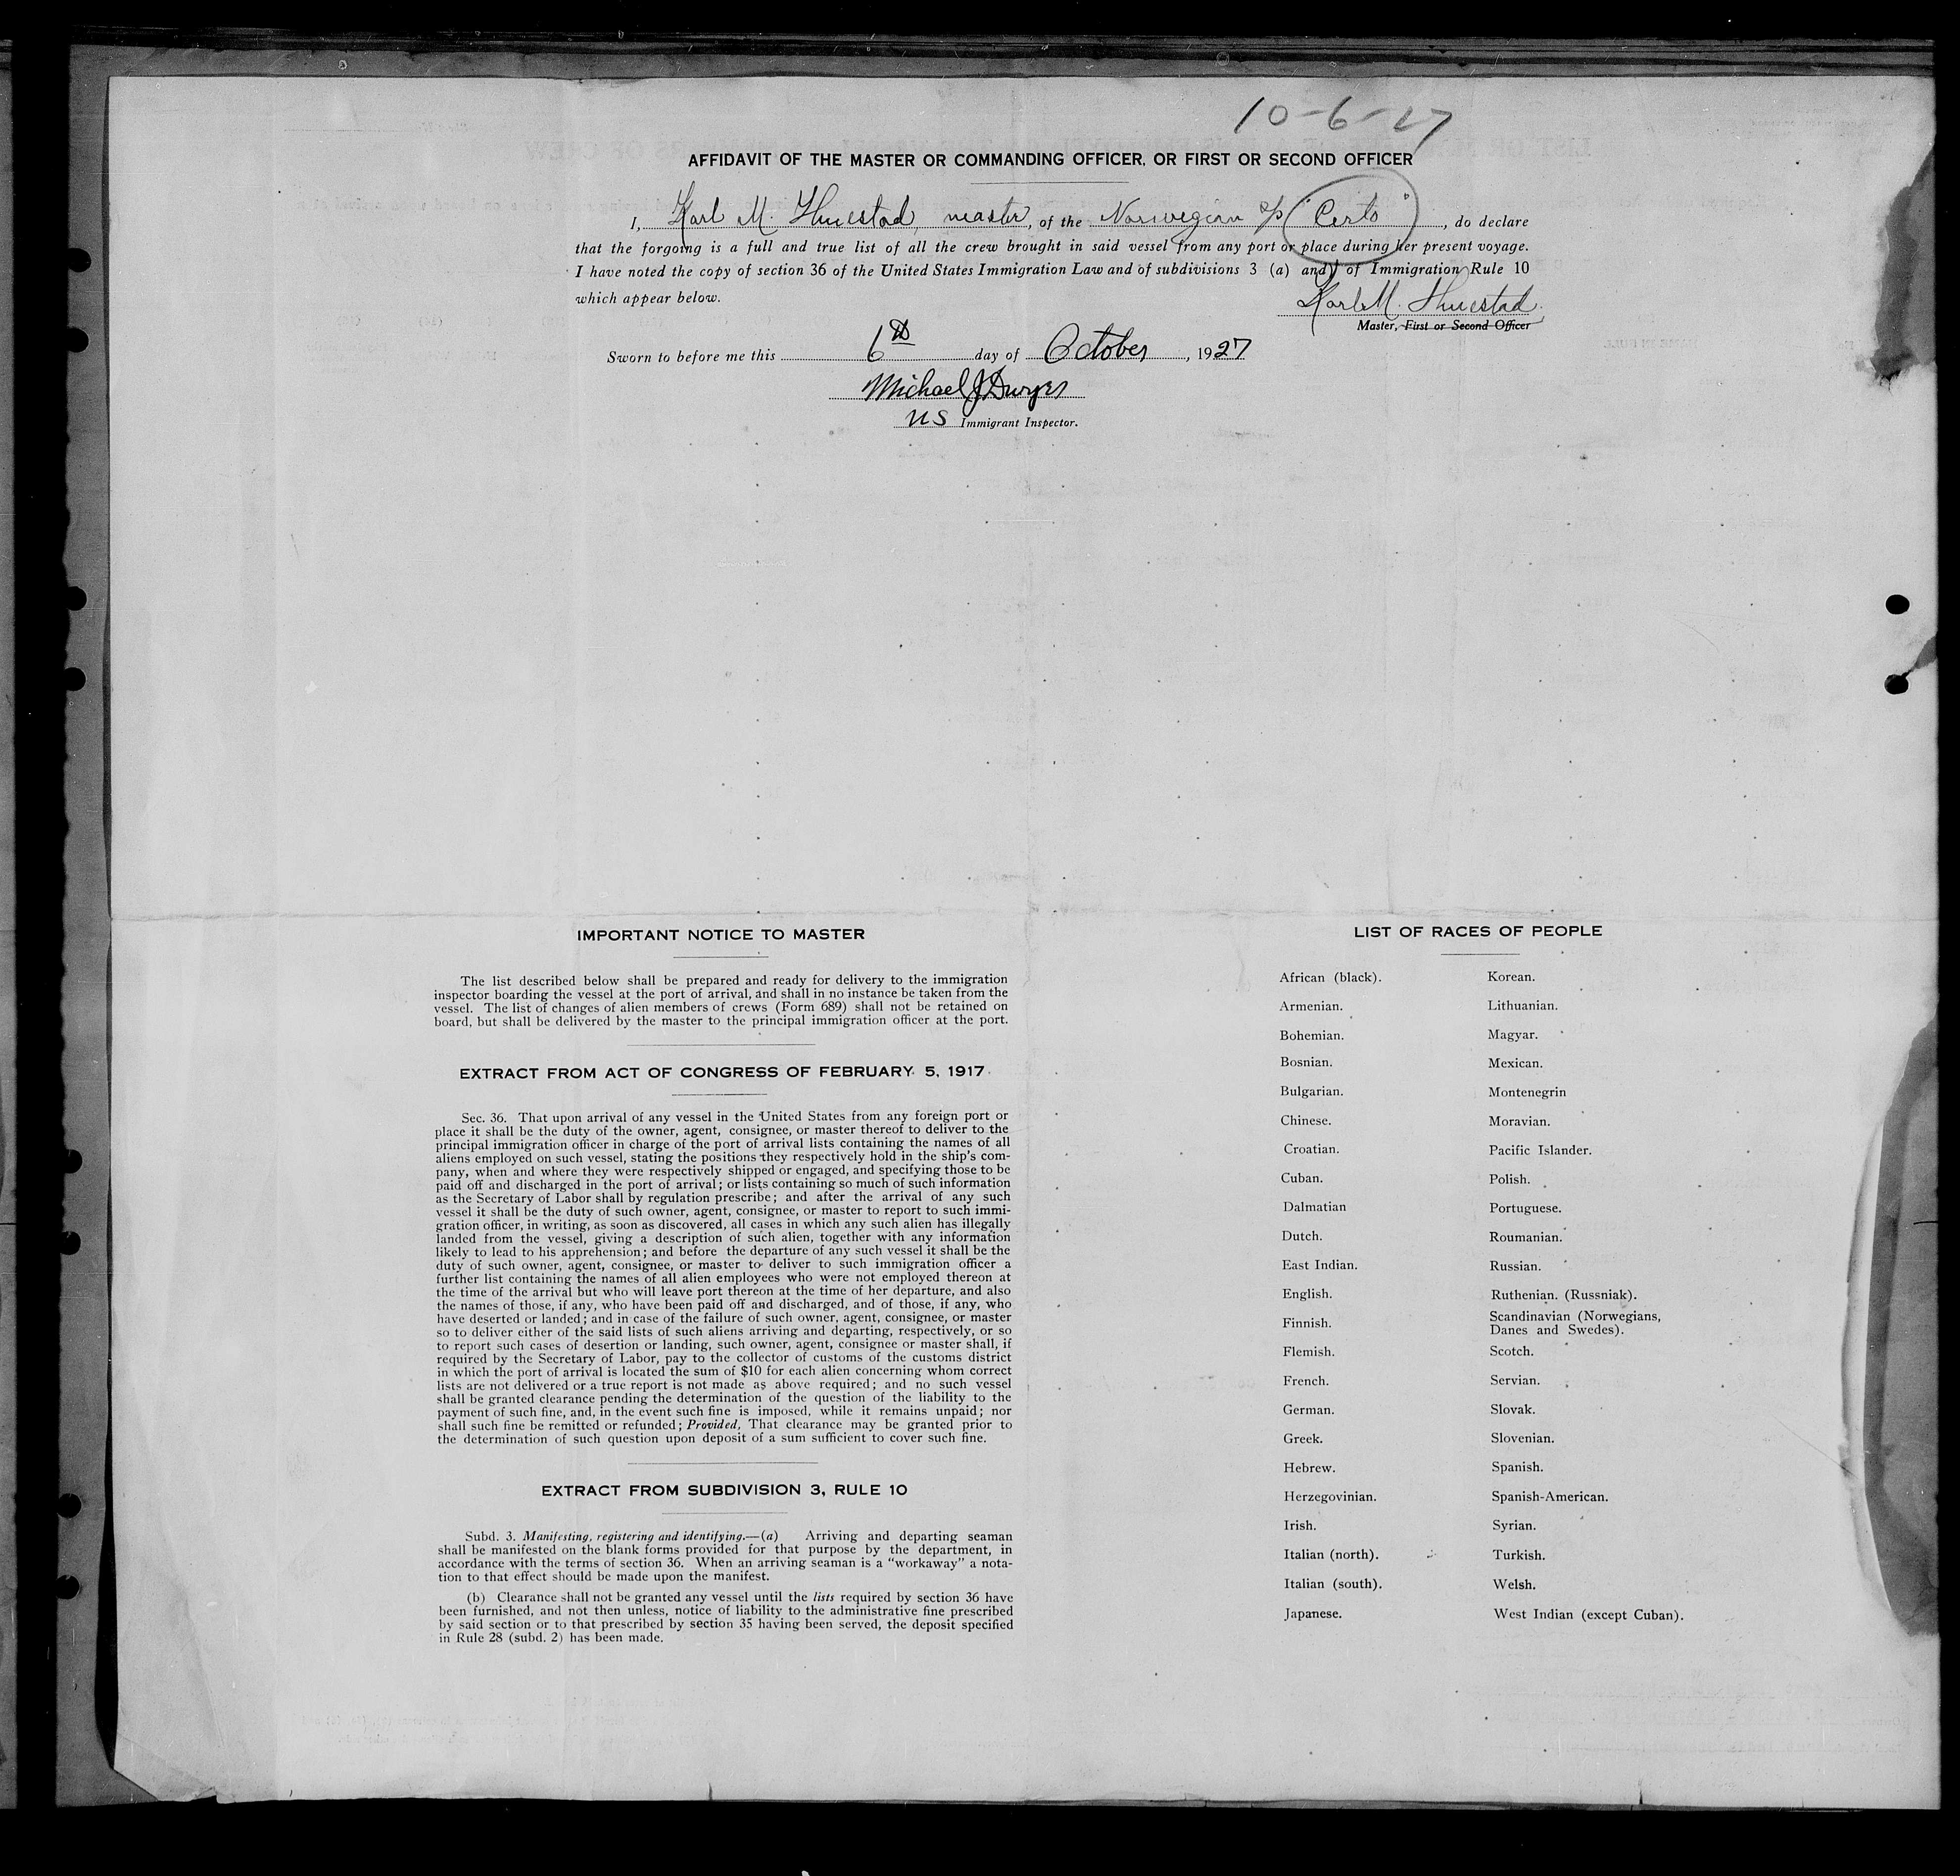 10-6-27
AFFIDAVIT OF THE MASTER OR COMMANDING OFFICER, OR FIRST OR SECOND OFFICER
I, Karl M. master, of the Norwegian S/S "Certo", do declare
that the forgoing is a full and true list of all the crew brought in said vessel from any port or place during her present voyage.
I have noted the copy of section 36 of the United States Immigration Law and of subdivisions 3 (a) and of Immigration Rule 10
which appear below.
Karl M.
Master, First or Second Officer
Sworn to before me this 6th day of October, 1927
Michael J Dwyer
US Immigrant Inspector.
IMPORTANT NOTICE TO MASTER
The list described below shall be prepared and ready for delivery to the immigration
inspector boarding the vessel at the port of arrival, and shall in no instance be taken from the
vessel. The list of changes of alien members of crews (Form 689) shall not be retained on
board, but shall be delivered by the master to the principal immigration officer at the port.
EXTRACT FROM ACT OF CONGRESS OF FEBRUARY 5, 1917
Sec. 36. That upon arrival of any vessel in the United States from any foreign port or
place it shall be the duty of the owner, agent, consignee, or master thereof to deliver to the
principal immigration officer in charge of the port of arrival lists containing the names of all
aliens employed on such vessel, stating the positions they respectively hold in the ship's com-
pany, when and where they were respectively shipped or engaged, and specifying those to be
paid off and discharged in the port of arrival; or lists containing so much of such information
as the Secretary of Labor shall by regulation prescribe; and after the arrival of any such
vessel it shall be the duty of such owner, agent, consignee, or master to report to such immi-
gration officer, in writing, as soon as discovered, all cases in which any such alien has illegally
landed from the vessel, giving a description of such alien, together with any information
likely to lead to his apprehension; and before the departure of any such vessel it shall be the
duty of such owner, agent, consignee, or master to deliver to such immigration officer a
further list containing the names of all alien employees who were not employed thereon at
the time of the arrival but who will leave port thereon at the time of her departure, and also
the names of those, if any, who have been paid off and discharged, and of those, if any, who
have deserted or landed; and in case of the failure of such owner, agent, consignee, or master
so to deliver either of the said lists of such aliens arriving and departing, respectively, or so
to report such cases of desertion or landing, such owner, agent, consignee or master shall, if
required by the Secretary of Labor, pay to the collector of customs of the customs district
in which the port of arrival is located the sum of $10 for each alien concerning whom correct
lists are not delivered or a true report is not made as above required; and no such vessel
shall be granted clearance pending the determination of the question of the liability to the
payment of such fine, and, in the event such fine is imposed, while it remains unpaid; nor
shall such fine be remitted or refunded; Provided, That clearance may be granted prior to
the determination of such question upon deposit of a sum sufficient to cover such fine.
EXTRACT FROM SUBDIVISION 3, RULE 10
Subd. 3. Manifesting, registering and identifying.—(a) Arriving and departing seaman
shall be manifested on the blank forms provided for that purpose by the department, in
accordance with the terms of section 36. When an arriving seaman is a "workaway" a nota-
tion to that effect should be made upon the manifest.
(b) Clearance shall not be granted any vessel until the lists required by section 36 have
been furnished, and not then unless, notice of liability to the administrative fine prescribed
by said section or to that prescribed by section 35 having been served, the deposit specified
in Rule 28 (subd. 2) has been made.
LIST OF RACES OF PEOPLE
African (black).
Armenian.
Bohemian.
Bosnian.
Bulgarian.
Chinese.
Croatian.
Cuban.
Dalmatian
Dutch.
East Indian.
English.
Finnish.
Flemish.
French.
German.
Greek.
Hebrew.
Herzegovinian.
Irish.
Italian (north).
Italian (south).
Japanese.
Korean.
Lithuanian.
Magyar.
Mexican.
Montenegrin
Moravian.
Pacific Islander.
Polish.
Portuguese.
Roumanian.
Russian.
Ruthenian. (Russniak).
Scandinavian (Norwegians,
Danes and Swedes).
Scotch.
Servian.
Slovak.
Slovenian.
Spanish.
Spanish-American.
Syrian.
Turkish.
Welsh.
West Indian (except Cuban).